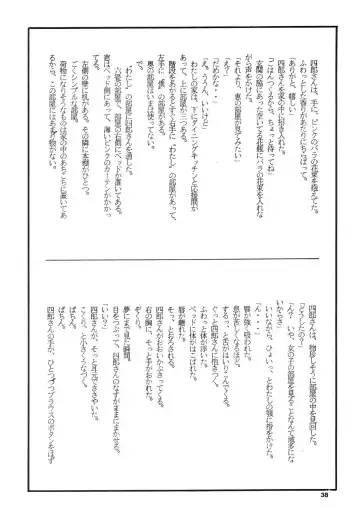 四郎さんは、手に、ピンクのバラの花束を抱えてた。
ふわっとした香りがあたりにちらばって。
「ありがと、嬉しい」
四郎さんを家の中に招き入れた。
「ごはんつくるから、ちょっと待っててね」
玄関の脇にあった空いてる花瓶にバラの花束を入れな
がら声をかけた。
「それより、恵の部屋が見てみたい」
「え?」
「だめかな・・」
「え、ううん、いいけど」
わたしの家は、下にダイニングキッチンと応接間が
あって、上に部屋が三つある。
階段をあがるとすぐ右手に「わたし」の部屋があって、
左手に「僕」の部屋がある。
奥の部屋はいまは使ってない。
「わたし」の部屋に四郎さんを通した。
六畳の部屋で、部屋の右側にベッドが置いてある。
ベッドの向こうに窓があって、薄いピンクのカーテンがかかって
る。
左側の壁に机がある。その隣に本棚がひとつ。
ごくシンプルな部屋。
荷物になりそうなものは家の中のあちこちに置いてあ
るから、この部屋にはあまり物がない。
四郎さんは、物珍しそうに部屋の中を見回した。
「どうしたの?」
「ん?いや、女の子の部屋を見ることなんて滅多にな
いからさ」
いいながら、ひょいっ、とわたしの顎に指をかけた。
「ん・・」
唇が強く吸われた。
息が苦しくなるほど。
するっ、と舌がはいりこんでくる。
ぐっと四郎さんに抱きつく。
ふわっ、と体が浮いた。
ベッドに体がはこばれた。
唇が離れた。
そっ、とおろされる。
四郎さんがおおいかぶさってくる。
右の胸に、そっと手がおかれた。
ぞくり。
夢にまで見た瞬間。
目をつぶって、四郎さんのなすがままにまかせる。
四郎さんが、そっと耳元でささやいた。
こくり、と小さくうなづく。
ぱちん。
ぱちん。
四郎さんの手が、ひとつづつブラウスのボタンをはず
38